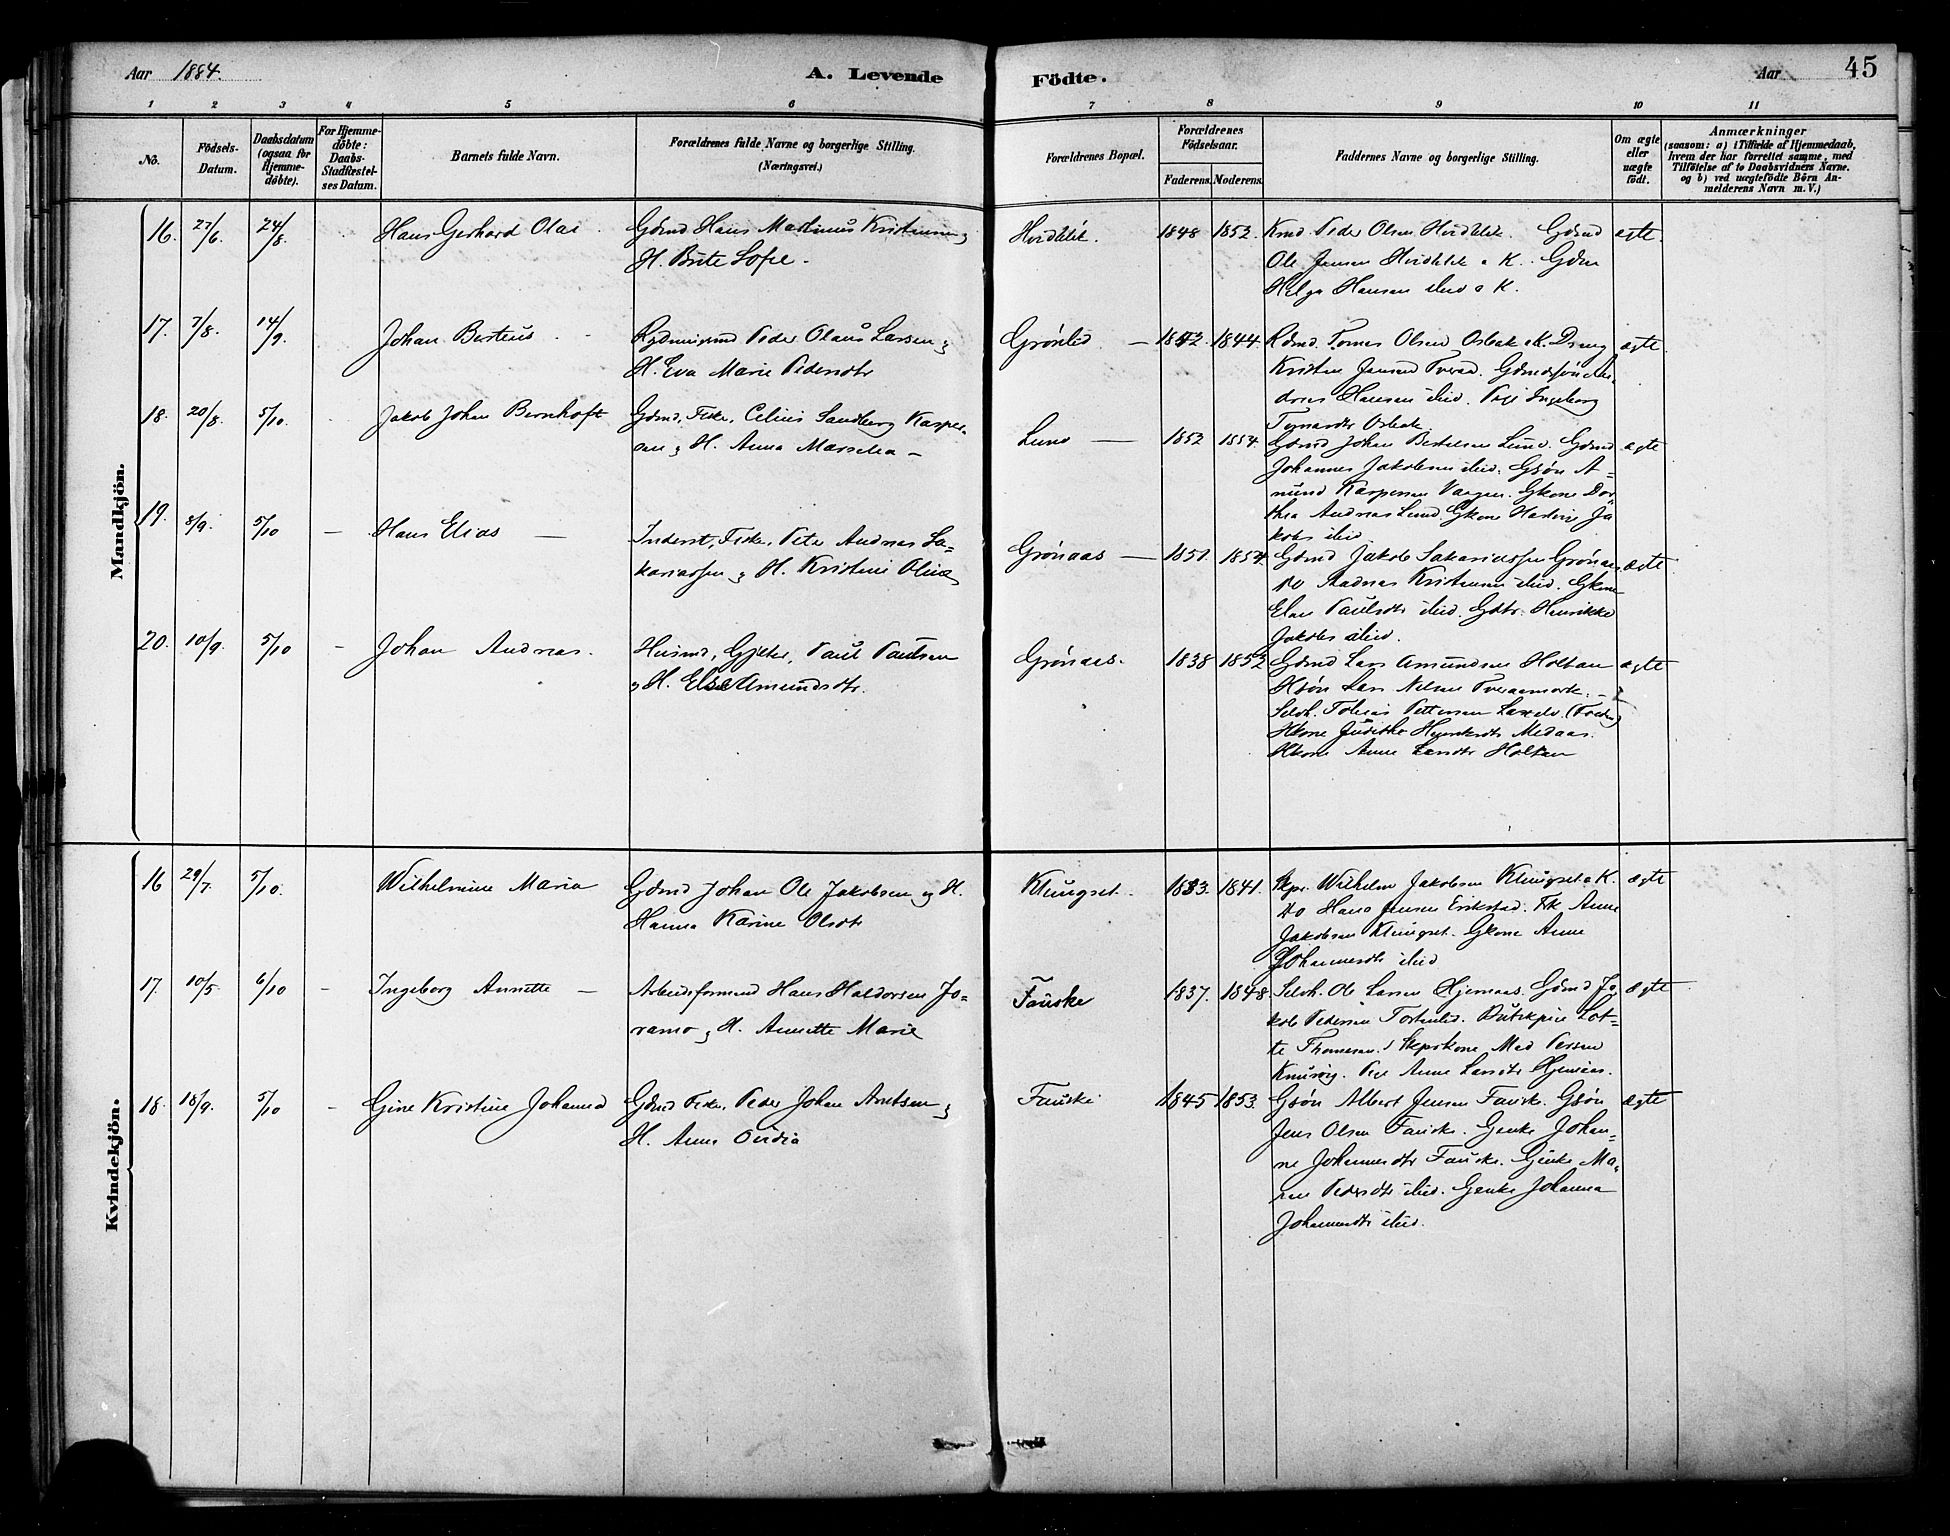 Aar 1884.
A. Levende
Födte.
Aar
45
1 2 3 4 5 6 7 8 9 10 11
No.
Födsels-
Datum.
Daabsdatum
(ogsaa for
Hjemme-
døbte).
For Hjemme-
døbte:
Daabs-
Stadfæstel-
ses Datum.
Barnets fulde Navn.
Forældrenes fulde Navne og borgerlige Stilling.
(Næringsvei.)
Forældrenes Bopæl.
Forældrenes
Fødselsaar.
Faderens. Moderens.
Faddernes Navne og borgerlige Stilling.
Om ægte
eller
uægte
födt.
Anmærkninger
(saasom: a) i Tilfælde af Hjemmedaab,
hvem der har forrettet samme, med
Tilföielse af to Daabsvidners Navne.
og b) ved uægtefödte Börn An-
melderens Navn m. V.)
Mandkjön.
16. 27/6. 24/8. Hans Gerhard Olai
Gdmd Hans Martinus Kristensen og
H. Brite Sofie.
Hvidblik. 1848 1852.
Kmd Peder Olsen Hvidblik. Gdmd
Ole Jensen Hvidblik a K. Gdm
Helge Hansen ibid a K.
ægte.
17. 7/8. 14/9. Johan Berteus
Rydningsmd Peder Olaus Larsen og
H. Eva Marie Pedersdtr
Grönlid 1842. 1844.
Rdmd Tomas Olsen Osbak a K. Dreng
Kristen Jensen Tveraa. Gdmdsøn An-
dreas Hansen ibid. Pige Ingeborg
Tomasdtr Osbak.
ægte.
18. 20/8. 5/10. Jakob Johan Bernhoft
Gdmd, Fisker, Celius Sandberg Kasper-
sen og H. Anna Marselia
Lund 1852 1854.
Gdmd Johan Bertelsen Lund. Gdmd
Johannes Jakobsen ibid. Gsøn A-
mund Kaspersen Vaagen. Gkone Dor-
thea Andreas Lund. Gkone Hartvig Ja-
kobs ibid.
ægte
19. 8/9. 5/10 — Hans Elias
Inderst, Fisker, Peter Andreas Sa-
kariassen og H. Kristine Oline
Grönaas 1851. 1854.
Gdmd Jakob Sakariassen Grönaas.
Do Andreas Kristensen ibid. Gkone
Else Paulsdtr ibid. Gdtr. Henrikke
Jakobs ibid.
ægte.
20. 10/9. 5/10 - Johan Andreas.
Husmd, Gjæter, Paul Paulsen
og H. Else Amundsdtr.
Grönaas. 1838 1852
Gdmd Lars Amundsen Holtan
Hsøn Lars Nilsen Tveraamark.
Selvh. Tobias Pettersen
Hkone Judithe Henriksdtr Medaas.
Hkone Anne Larsdtr Holtan
ægte
Kvindekjön.
16 29/7. 5/10. Wilhelmine Maria
Gdmd Johan Ole Jakobsen og H.
Hanna Karine Olsdtr
Klungset. 1833. 1841.
Skpr. Wilhelm Jakobsen Klungset a K.
Do Hans Jensen Erikstad. Fik Anne
Jakobsen Klungset. Gkone Anne
Johannesdtr ibid
ægte
17. 10/5. 6/10 - Ingeborg Annette —
Arbeidsformand Hans Haldorsen Jo-
ramo og H. Annette Marie
Fauske 1837. 1848.
Selvh. Ole Larsen Hjemaas. Gdmd Ja-
kob Pedersen Tortenlid. Butikpige Lot-
te Thomesen. Skprkone Mad Persen
Knurvig. Pige Anne Larsdtr Hjemaas.
ægte
18. 18/9. 5/10 - Gine Kristine Johanna
Gdmd Fisker, Peder Johan Arntsen og
H. Anne Ovidia
Fauske 1845 1853.
Gsön Albert Jensen Fauske. Gsön
Jens Olsen Fauske. Genke Johan-
ne Johannesdtr Fauske. Genke Ma-
ren Pedersdtr ibid. Genke Johanna
Johannesdtr ibid.
ægte